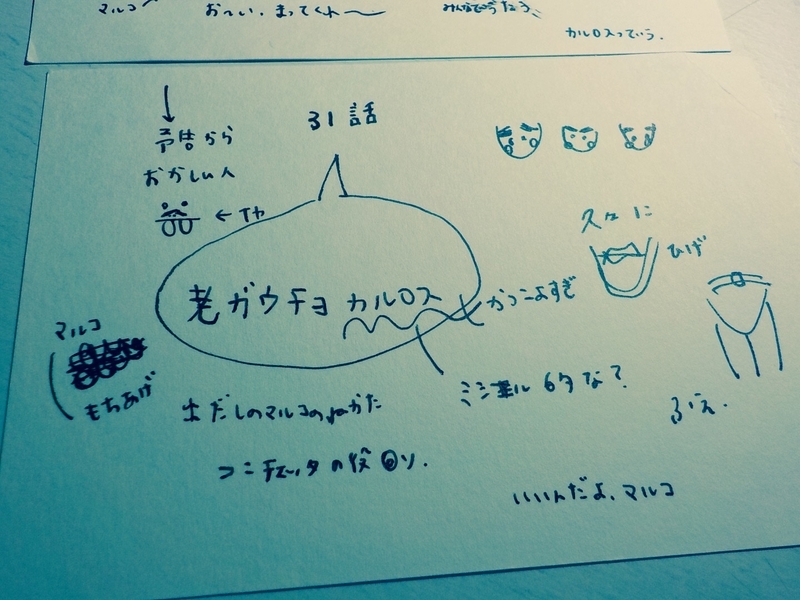 マルコ
おーい、まってくれ〜
みんなでうたう
カルロスっていう。
31話
↓
予告から
おかしい人
←
久々に
ひげ
老ガウチョ カルロス
かっこよすぎ
マルコ
もちあげ
ミシェル的な?
出だしのマルコの
コンチェッタの役回り.
ふえ.
いいんだよ、マルコ